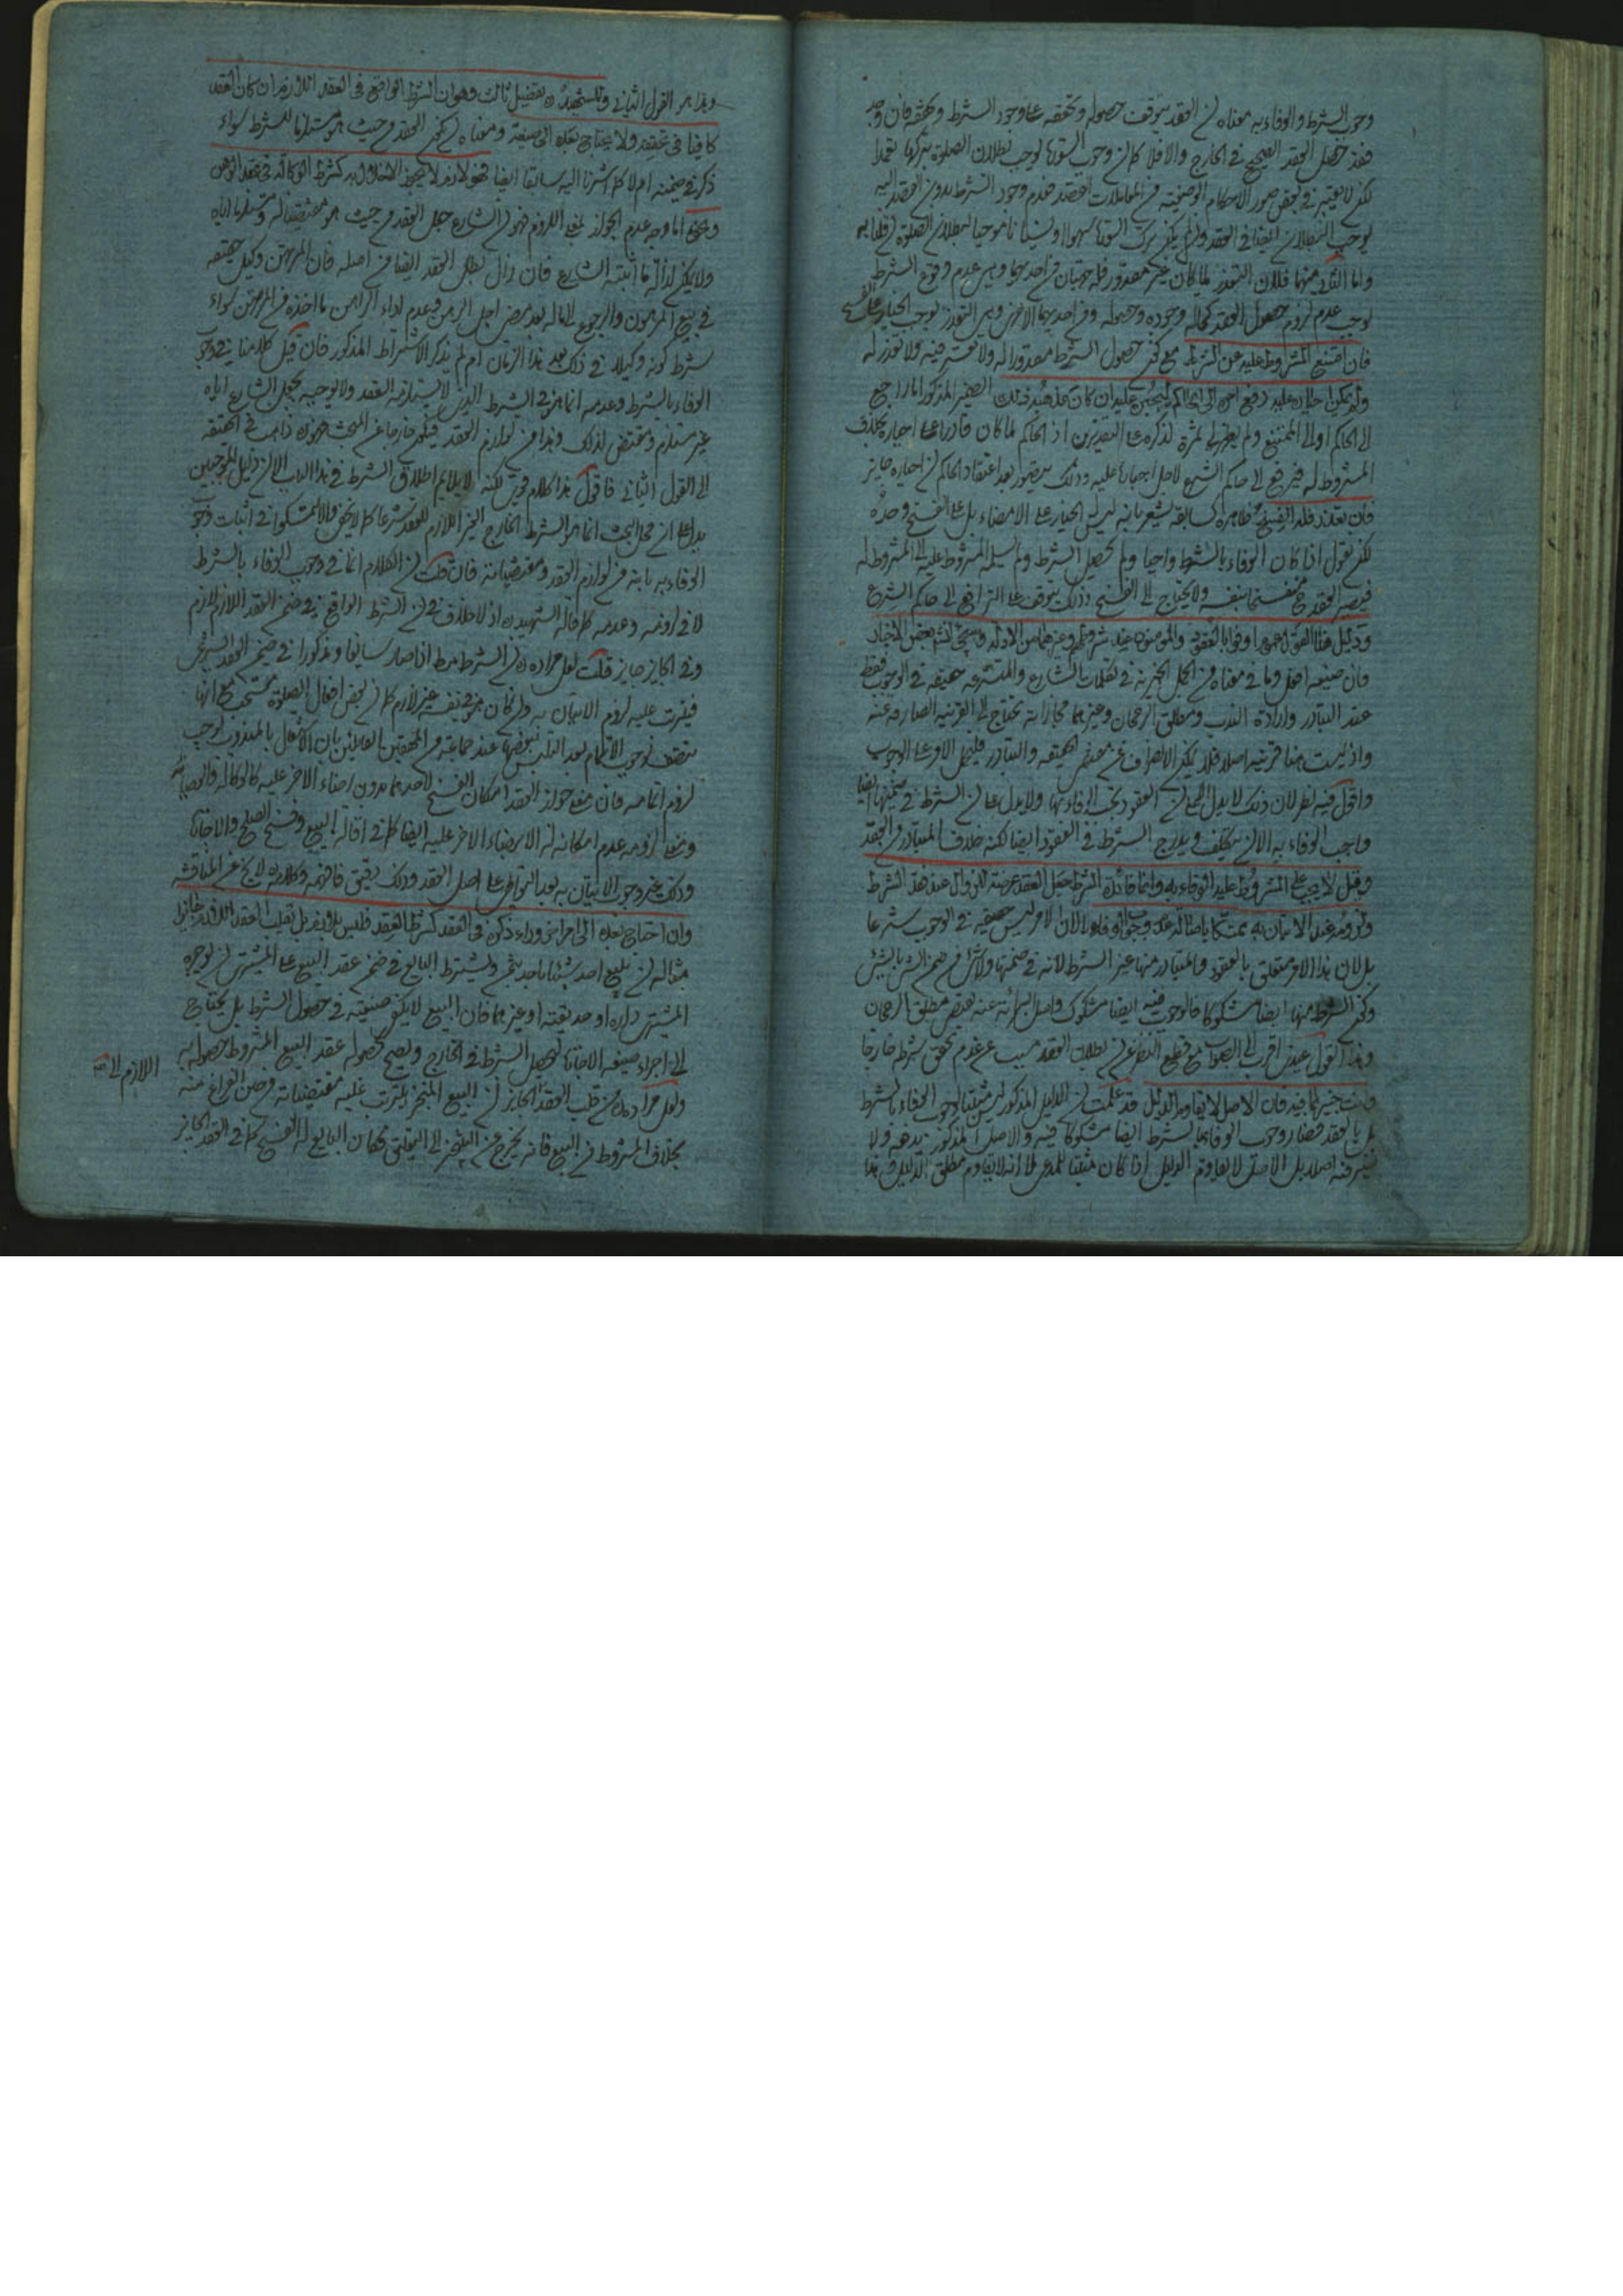 وجوب الشرط والوفاء به معناه ان العقد يتوقف حصوله وتحققه على وجود الشرط وتحققه فان وجد
فقد حصل العقد الصحيح في الخارج والا فلا كما ان وجوب السورة يوجب بطلان الصلوة بتركها تعمدا
لكن في بعض صور الاحكام الوضعية في المعاملات القصد فعدم وجود الشرط بدون القصد اليه
يوجب البطلان ايضا في العقد وان لم يكن ترك السورة سهوا او نسيانا موجبا لبطلان الصلوة
واما الثاني منهما فلان التعذر لما كان غير مقدور فله جهتان في احديهما وهي عدم وقوع الشرط
يوجب عدم لزوم حصول العقد كماله وجوده وحصوله وفي احديهما الاخرى وهي التعذر يوجب الخيار على الفسخ
فان امتنع المشروط عليه عن الشرط مع كون حصول الشرط مقدورا له ولا تعسر فيه ولا تعذر له
ولم يمكن اجباره عليه رفع امره الى الحاكم ليجبره عليه ان كان مذهبه ذلك الضمير المذكور اما راجع
الى الحاكم او الى الممتنع ولم يظهر لي ثمرة لذكره على التقديرين اذ الحاكم لما كان قادرا على اجباره بخلاف
المشروط له فيرفع الى حاكم الشرع لاجل اجباره عليه وذلك يتصور بعد اعتقاد الحاكم ان اجباره جايز
فان تعذر فله الفسخ ظاهره كسابقه يشعر بانه ليس له الخيار على الامضاء بل على الفسخ وحده
لكن نقول اذا كان الوفاء بالشرط واجبا ولم يحصل الشرط ولم يسلمه المشروط عليه الى المشروط له
فيصير العقد ح منفسخا بنفسه ولا يحتاج الى الفسخ وذلك يتوقف على الترافع الى حاكم الشرع
ودليل هذا القول عموم اوفوا بالعقود والمؤمنون عند شروطهم وغيرهما من الادلة وسيجئ بعض الاخبار
فان صيغة افعل وما في معناه من الجمل الخبرية في كلمات الشارع والمتشرعة حقيقة في الوجوب فقط
عند التبادر وارادة الندب ومطلق الرجحان وغيرهما مجازا به تحتاج الى القرينة الصارفة عنه
واذ ليست هنا قرينة اصلا فلا يمكن الانصراف عن مقتضى الحقيقة والتبادر فليحمل الاوامر على الوجوب
واقول فيه نظر لان ذلك لا يدل الا على ان العقود يجب الوفاء بها ولا يدل على ان الشرط في ضمنها ايضا
واجب الوفاء به الا ان يتكلف ويدرج الشرط في العقود ايضا لكنه خلاف المتبادر من العقد
وقيل لا يجب على المشروط عليه الوفاء به وانما فائدة الشرط جعل العقد عرضة للزوال عند فقد الشرط
ولزومه عند الاتيان به تمسكا باصالة عدم وجوب الوفاء لا لان الامر ليس حقيقة في الوجوب شرعا
بل لان هذا الامر متعلق بالعقود والمتبادر منها غير الشرط لانه في ضمنها
وكون الشرط منها ايضا مشكوكا فالوجوب فيه ايضا مشكوك واصل البرائة عنه يقتضي مطلق الرجحان
وهذا القول عندي اقرب الى الصواب مع قطع النظر عن بطلان العقد بسبب عدم تحقق شرطه خارجا
وانت خبير بما فيه فان الاصل لا يقاوم الدليل قد علمت ان الدليل المذكور ليس مثبتا لوجوب الوفاء بالشرط
بل بالعقد فصار وجوب الوفاء بالشرط ايضا مشكوكا فيه والاصل المذكور يدفعه ولا
اصلا بل الاصل لا يقاوم الدليل اذا كان مثبتا للمدعى لا انه لا يقاوم مطلق الدليل في هذا
وهذا هو القول الثاني وللشهيد ره تفصيل ثالث وهو ان الشرط الواقع في العقد اللازم ان كان العقد
كافيا في تحققه ولا يحتاج بعده الى صيغة ومعناه ان يكون العقد من حيث هو مستلزما للشرط سواء
ذكر في ضمنه ام لا كما اشرنا اليه سابقا ايضا فهو لازم لا يجوز الاخلال به كشرط الوكالة في عقد الرهن
ونحوه اما وجه عدم الجواز بمعنى اللزوم فهو ان الشارع جعل العقد من حيث هو مقتضيا له ومستلزما اياه
ولا يمكن ازالة ما اثبته الشارع فان زال بطل العقد ايضا من اصله فان المرتهن وكيل حقيقة
في بيع المرهون والرجوع الى ماله بعد مضي اجل الرهن وعدم اداء الراهن ما اخذه من المرتهن سواء
شرط كونه وكيلا في ذلك بعد هذا الزمان ام لم يذكر الاشتراط المذكور فان قيل كلامنا في وجوب
الوفاء بالشرط وعدمه انما هو في الشرط الذي لا يستلزمه العقد ولا يوجبه بجعل الشارع اياه
غير مستلزم ومقتض لذلك وهذا من لوازم العقد فيكون خارجا عن المبحث فهو ره ذاهب في الحقيقة
الى القول الثاني فاقول هذا كلام قوي لكنه لا يلايم اطلاق الشرط في هذا الباب الا ان دليل الموجبين
يدل على ان محل البحث انما هو الشرط الخارج الغير اللازم للعقد شرعا كما لا يخفى والا لتمسكوا في اثبات وجوب
الوفاء به بانه من لوازم العقد ومقتضياته فان قلت ان الكلام انما في وجوب الوفاء بالشرط
لا في لزومه وعدمه كما قاله الشهيد ره اذ لا خلاف في ان الشرط الواقع في ضمن العقد اللازم لازم
وفي الجايز جايز قلت لعل مراده ره ان الشرط مط اذا صار سايغا ومذكورا في ضمن العقد الشرعي
فيترتب عليه لزوم الاتيان به وان كان هو في نفسه غير لازم كما ان بعض افعال الصلوة مستحب مع انها
تتصف بوجوب الاتمام بعد التلبس ببعضها عند جماعة من المحققين القائلين بان الاشتغال بالمندوب يوجب
لزوم اتمامه فان معنى جواز العقد امكان الفسخ لاحدهما بدون امضاء الاخر عليه كالوكالة والوصاية
ومعنى لزومه عدم امكانه له الا برضاء الاخر عليه ايضا كما في اقالة البيع وفسخ الصلح والاجارة
وذلك غير وجوب الاتيان به بعد التواطئ على اصل العقد وذلك دقيق فافهمه وكلامه ره لا يخ عن المناقشة
وان احتاج بعده الى امر اخر وراء ذكره في العقد كشرط العقد فليس بلازم بل يقلب العقد اللازم جائزا
مثاله ان يبيع احد شيئا باحد بثمن ويشترط البايع في ضمن عقد البيع على المشتري ان يوجره
المشتري داره او حديقته او غيرهما فان البيع لا يكفي صيغته في حصول الشرط بل يحتاج
الى اجراء صيغة الاجارة ليحصل الشرط في الخارج ويصح بحصوله عقد البيع المشروط حصوله به
ولعل مراده من قلب العقد الجايز ان البيع المنجز يترتب عليه مقتضياته وحين الفراغ منه
بخلاف المشروط من البيع فانه يخرج عن التنجز الى التعليق فكان البايع له الفسخ كما في العقد الجايز
اللازم الى